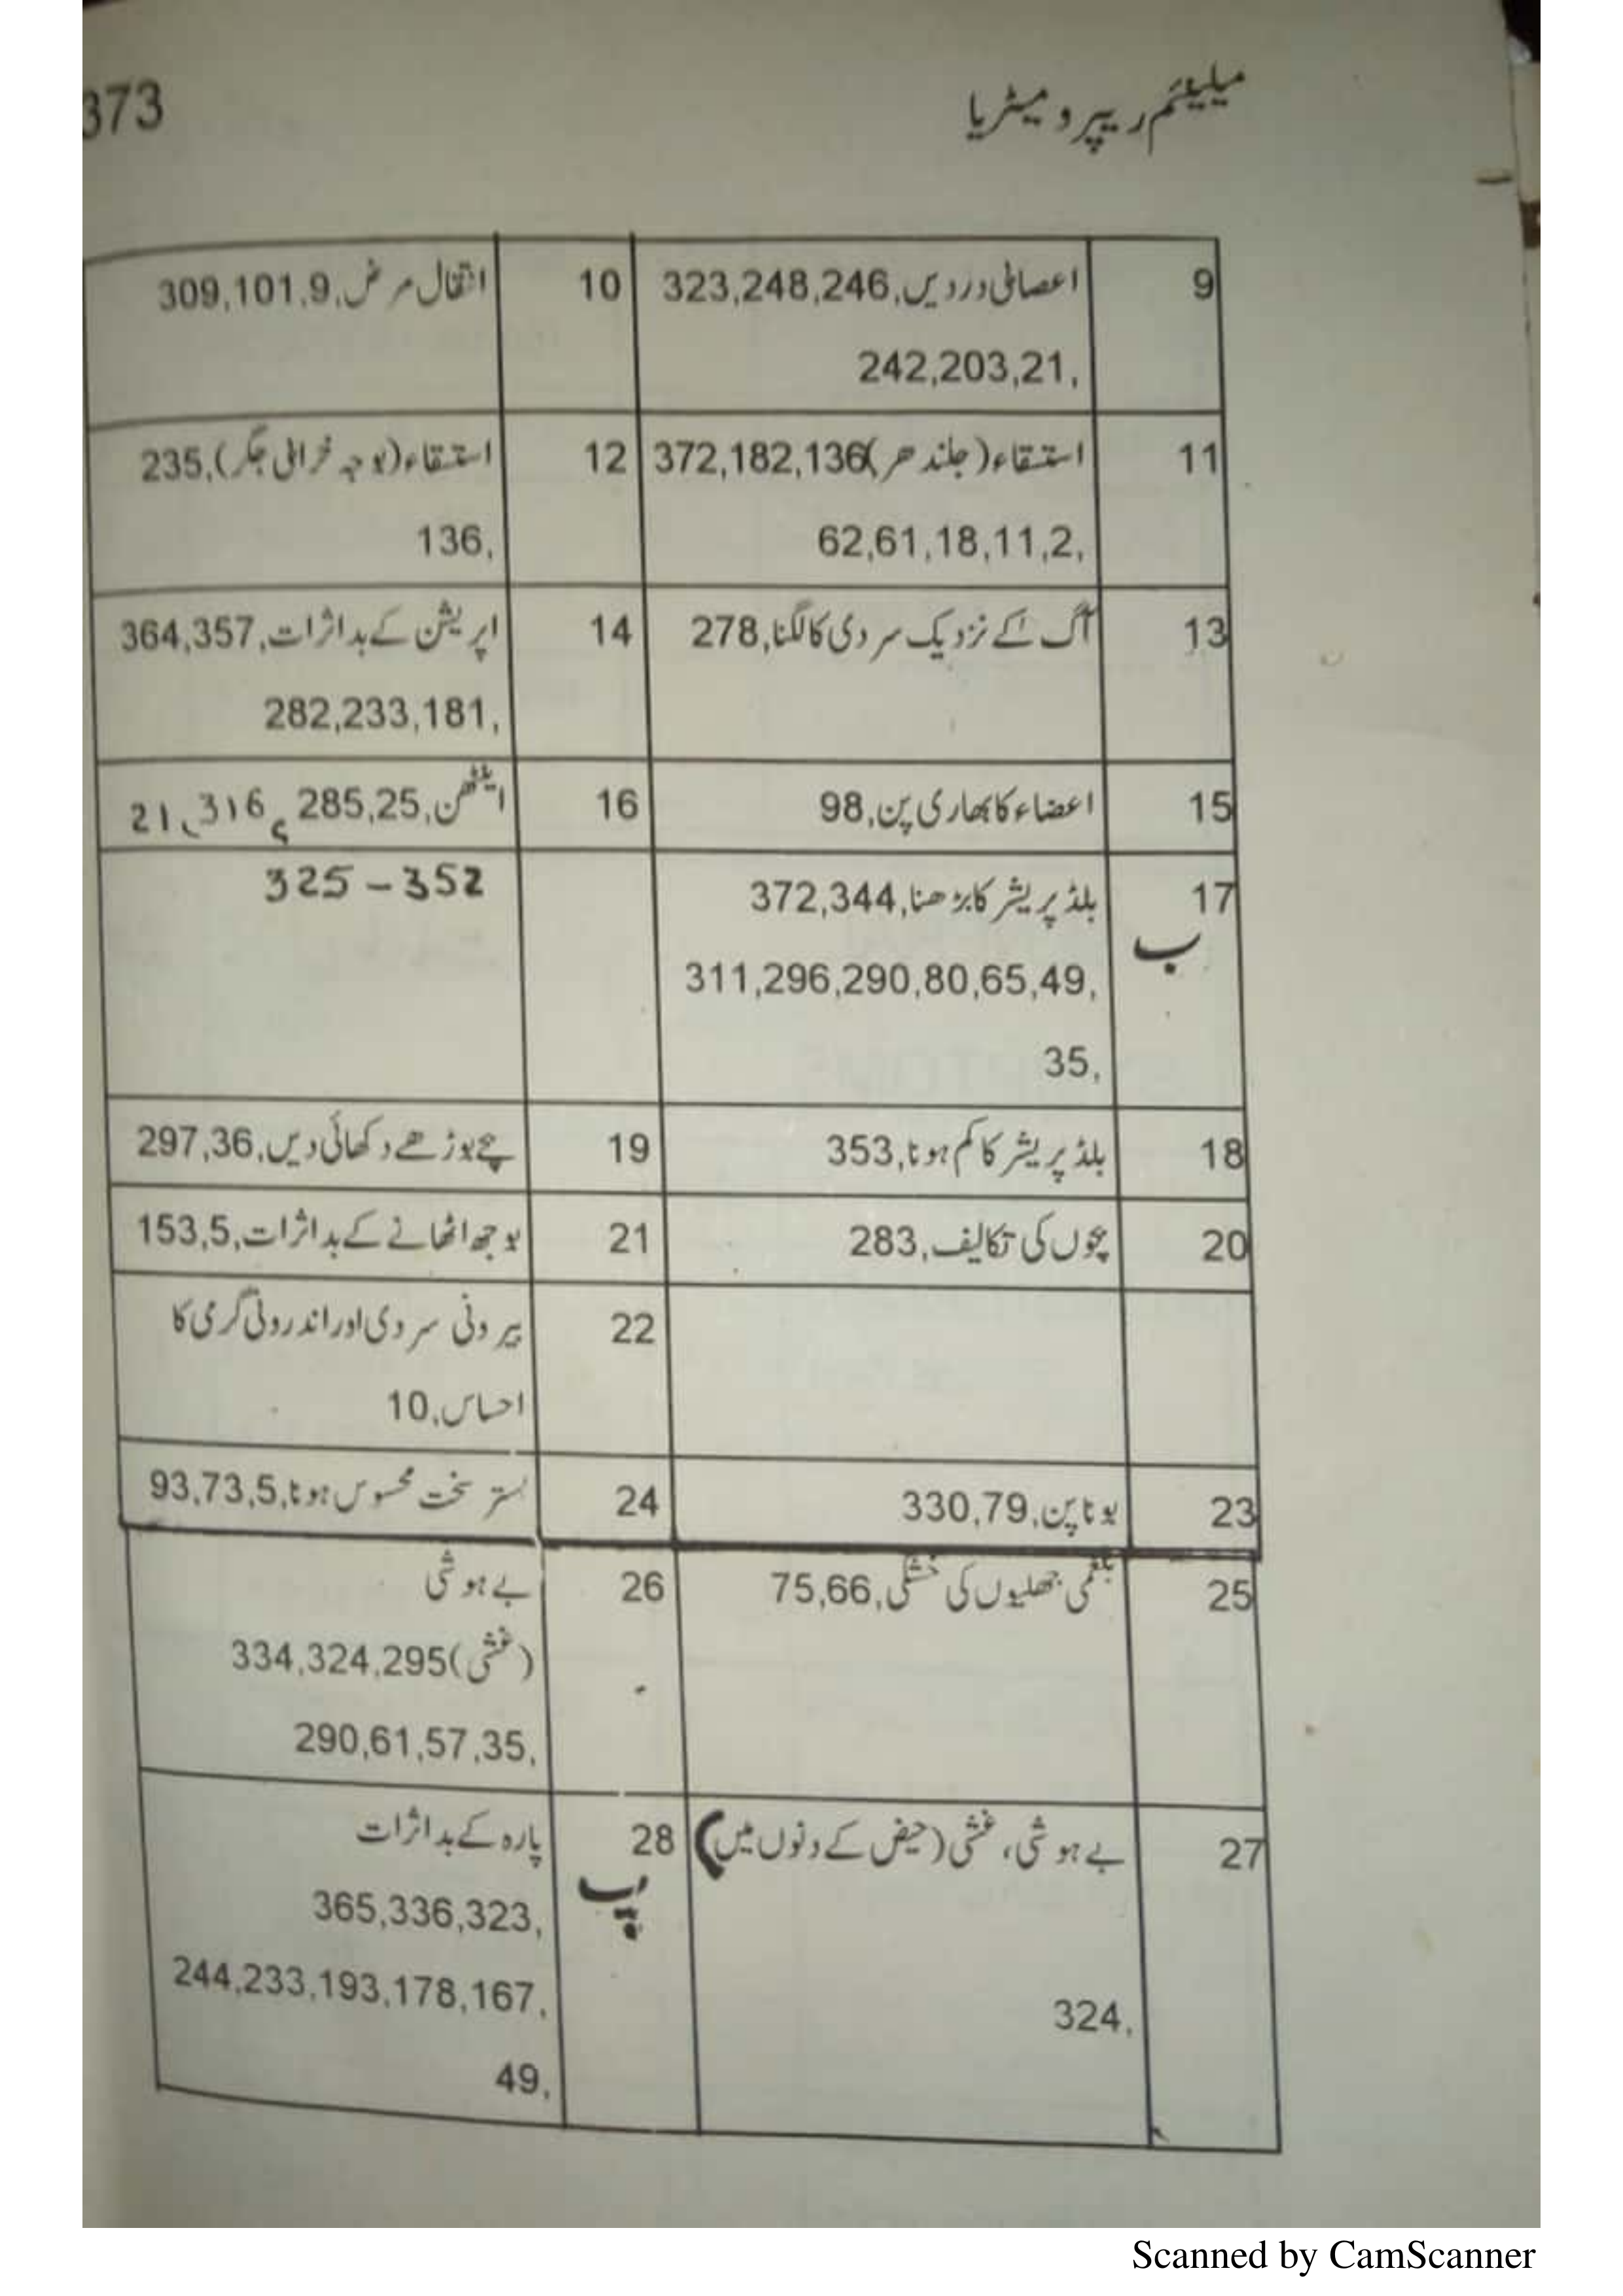 میلینیم ریپرومیٹریا
373
9
اعصابی دردیں,323,248,246
242,203,21,
10
انتقال مرض,309,101,9
11
استسقاء(جلندھر)372,182,136
62,61,18,11,2,
12
استسقاء(بوجہ خرابی جگر),235
136,
13
آگ کے نزدیک سردی کا لگنا,278
14
اپریشن کے بداثرات,364,357
282,233,181,
15
اعضاء کا بھاری پن,98
16
اینٹھن,285,25, 316, 21
325 - 352
17
ب
بلڈ پریشر کا بڑھنا,372,344
311,296,290,80,65,49,
35,
18
بلڈ پریشر کا کم ہونا,353
19
بچے بوڑھے دکھائی دیں,297,36
20
بچوں کی تکالیف,283
21
بوجھ اٹھانے کے بداثرات,153,5
22
بیرونی سردی اور اندرونی گرمی کا
احساس,10
23
بونا پن,330,79
24
بستر سخت محسوس ہونا,93,73,5
25
بلغمی جھلیوں کی خشکی,75,66
26
بے ہوشی
(غشی)334,324,295
290,61,57,35,
27
بے ہوشی، غشی(حیض کے دنوں میں)
324,
28
پ
پارہ کے بداثرات
365,336,323,
244,233,193,178,167,
49,
Scanned by CamScanner